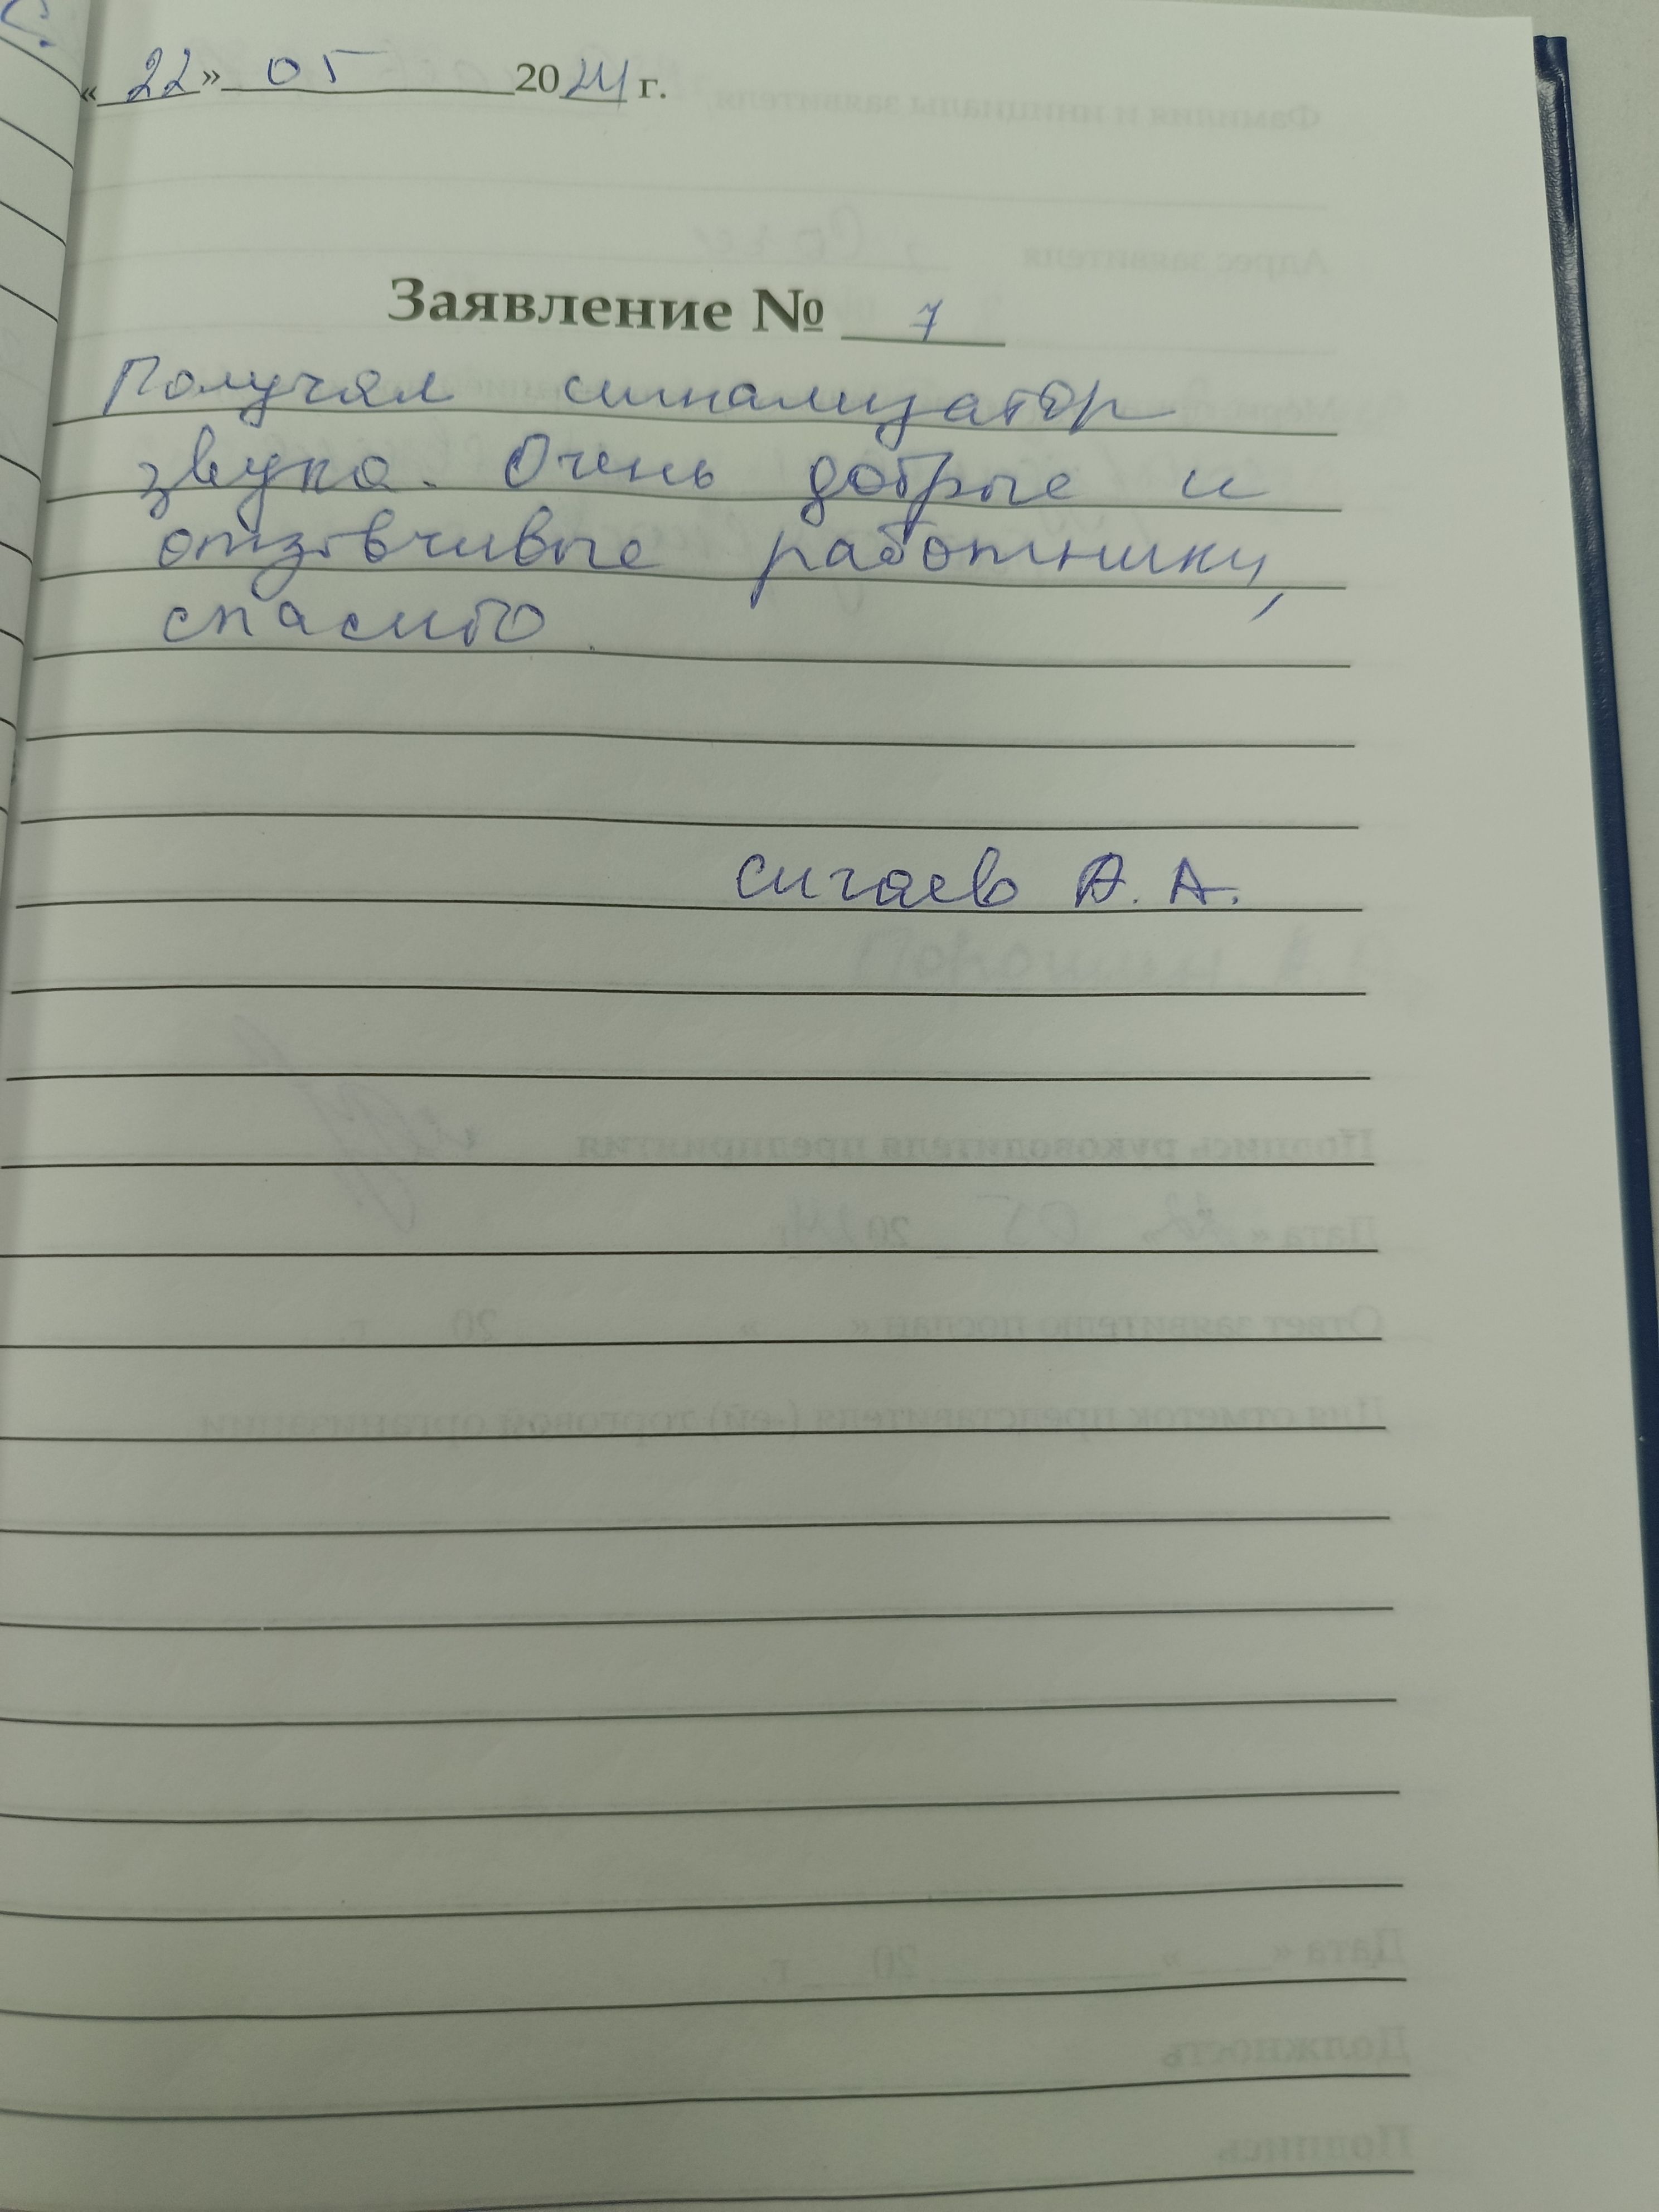 «22» 05 2024 г.
Заявление № 7
Получал сигнализатор
звука. Очень добрые и
отзовчивые работники,
спасибо
Сигаев А. А.